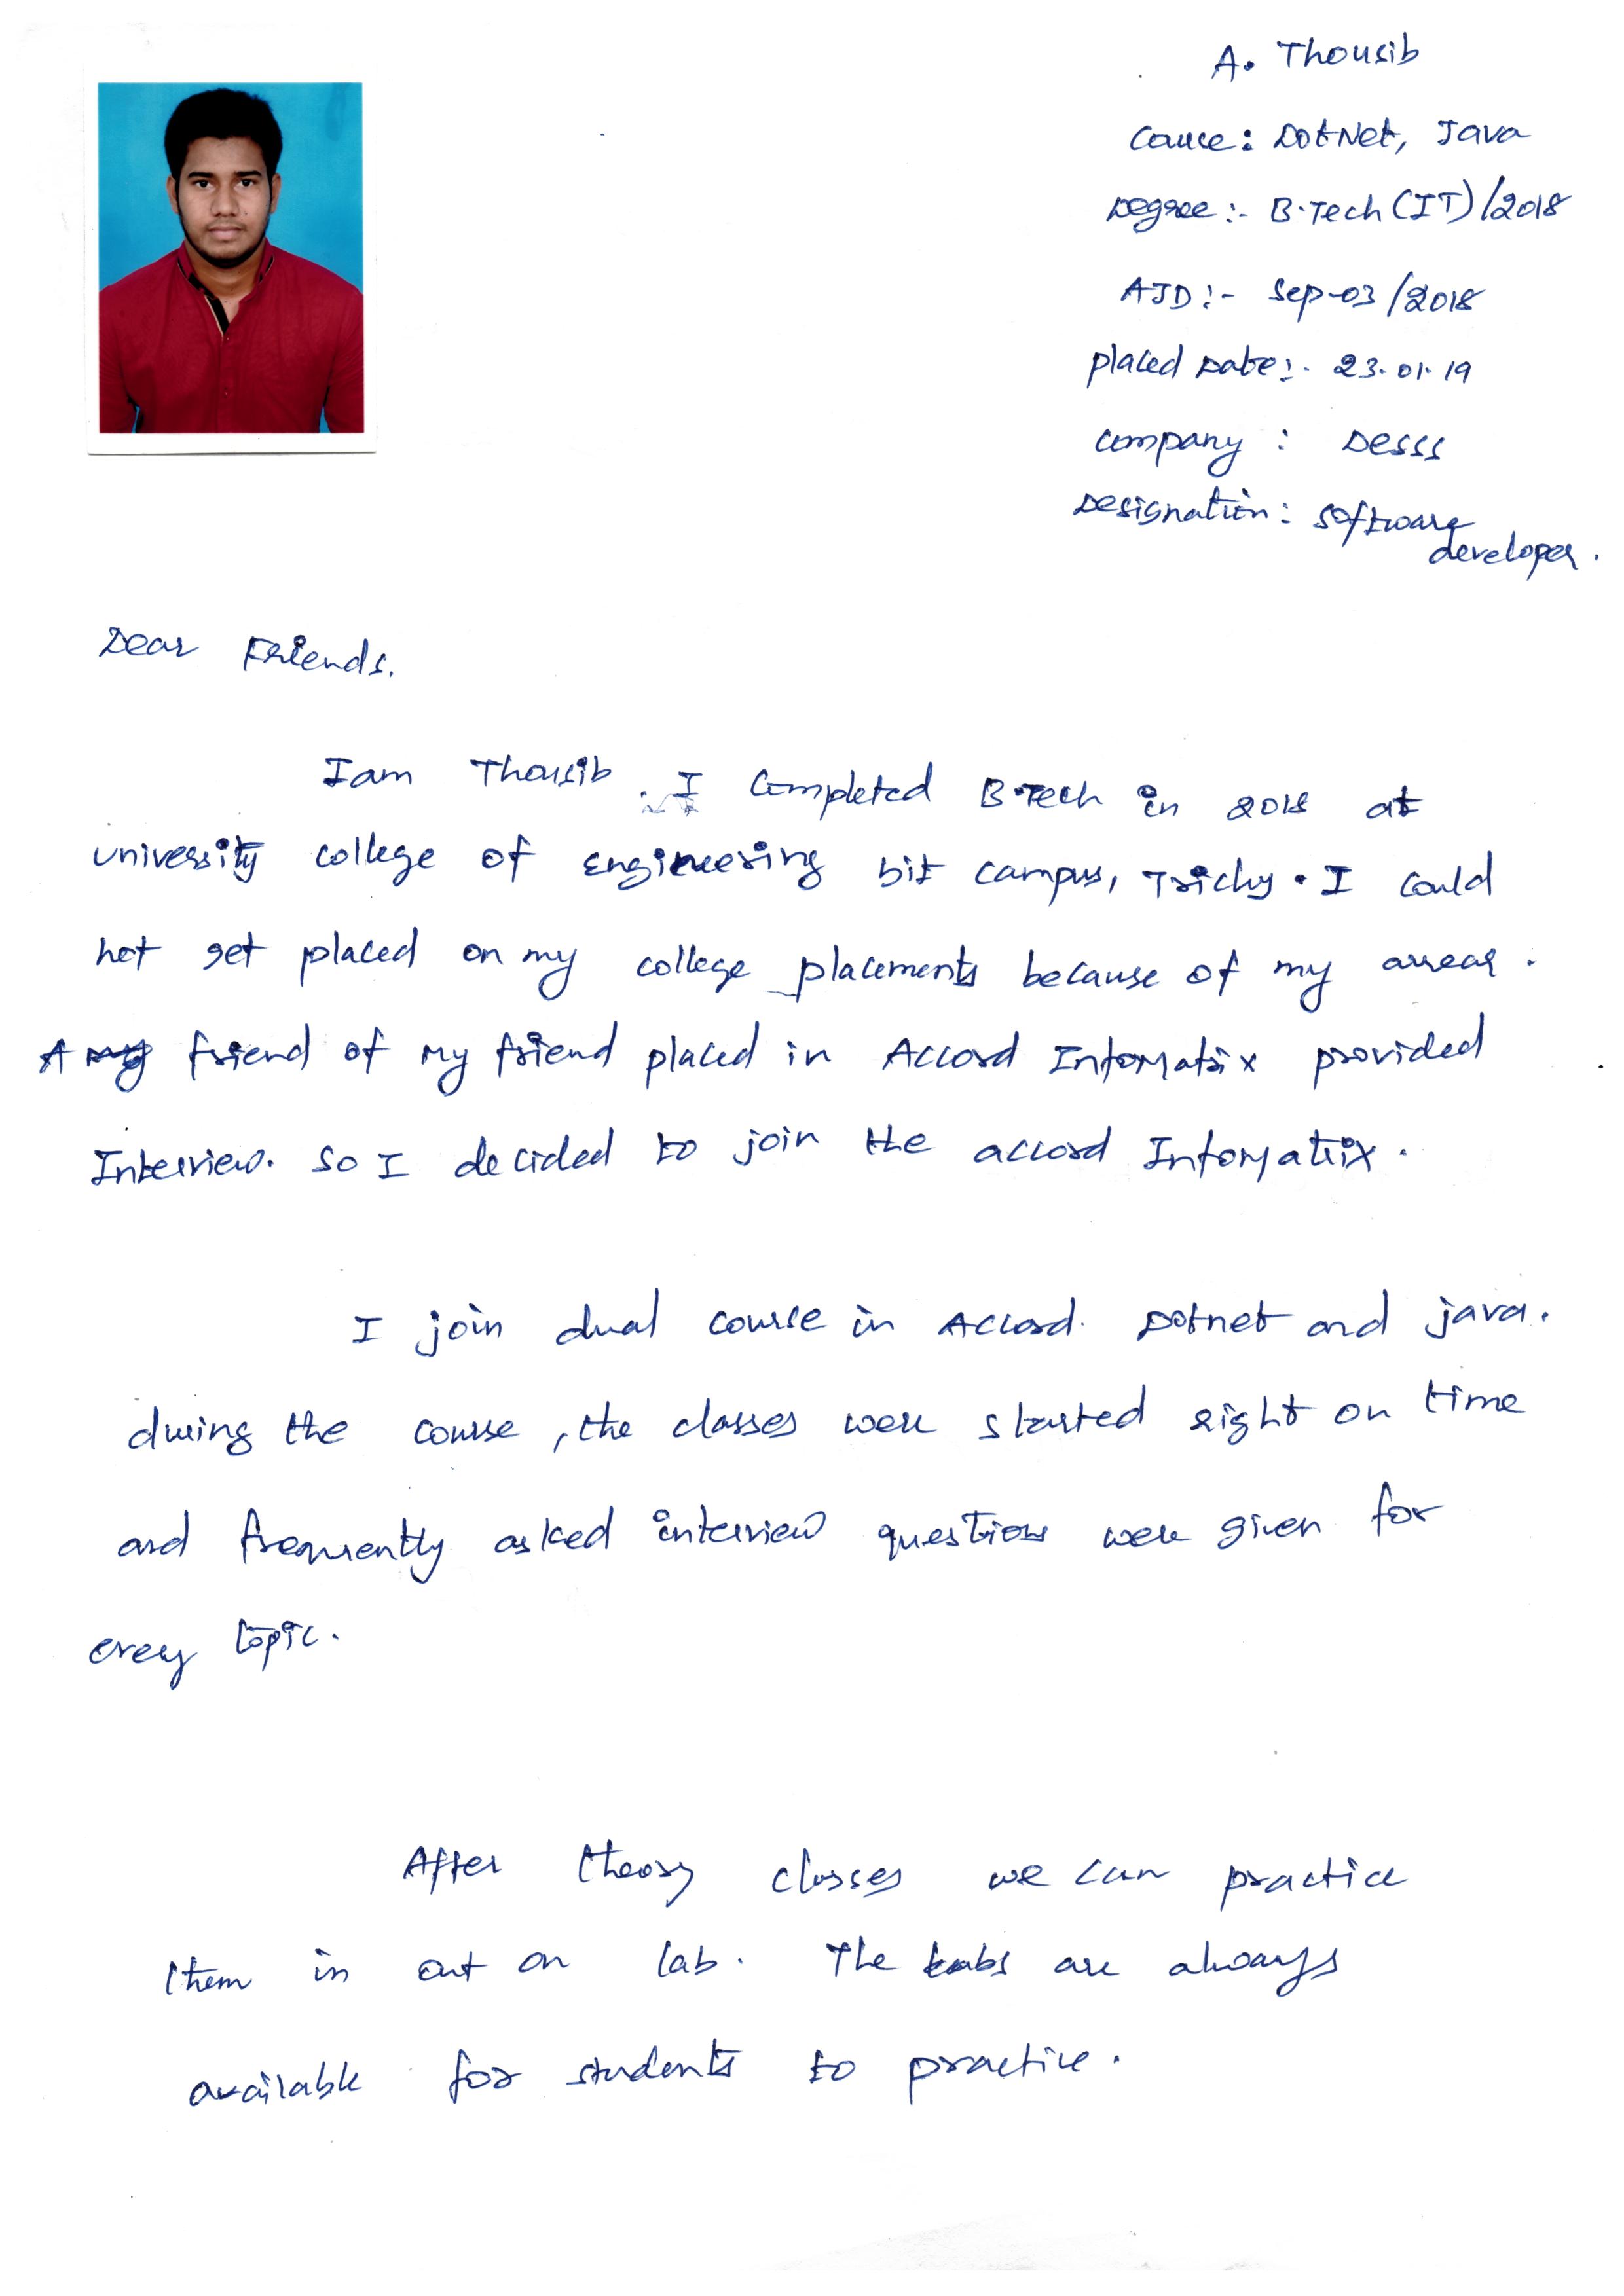 A. Thousib
Cource: DotNet, Java
Degree :- B.Tech (IT)/2018
AJD :- Sep-03/2018
placed Date :- 23.01.19
company : Desss
Designation : software
developer.
Dear Friends.
I am Thousib . I Completed B.Tech in 2018 at
university college of engineering bit campus, Trichy. I could
not get placed on my college placements because of my arrear.
A friend of my friend placed in Accord Informatrix provided
Interview. So I decided to join the accord Informatrix.
I join dual course in Accord. Dotnet and java.
during the course, the classes were started right on time
and frequently asked interview questions were given for
every topic.
After theory classes we can practice
them in out on lab. The labs are always
available for students to practice.